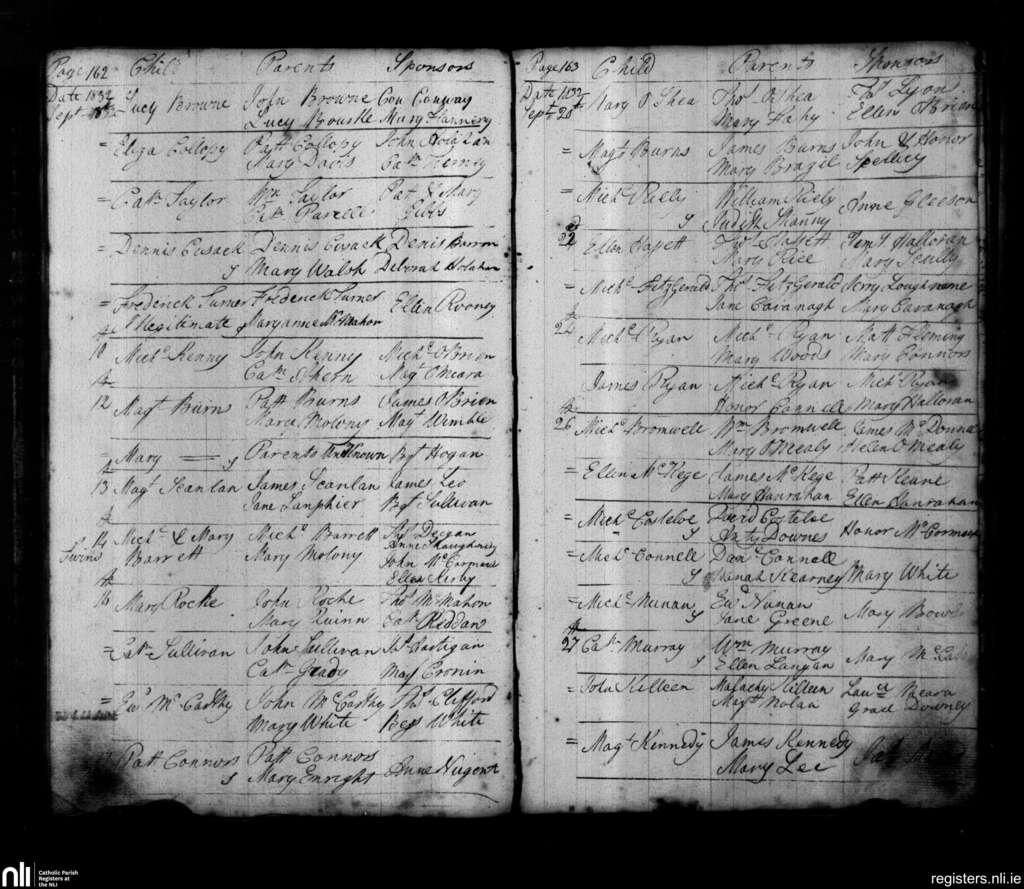 Page 162 Child Parents Sponsors
Date 1832
Sept Lucy Browne John Browne Con Conway
Lucy Bourke Mary Flannery
= Eliza Collopy Patt Collopy John Holahan
Mary Davis Cath Tierney
= Cath Taylor Wm Taylor Pat & Mary
Cath Purcell Gibbs
= Dennis Cusack Dennis Cusack Denis Barron
y Mary Walsh Deborah Holahan
= Frederick Turner Frederick Turner Ellen Rooney
Illegitimate y Maryanne McMahon
10 Michl Kenny John Kenny Michl O'Brien
Cath Ahern Magt O'Meara
12 Magt Burns Patt Burns James O'Brien
Molony Magt Wimble
= Mary — y Parents Unknown Bgt Hogan
13 Magt Scanlan James Scanlan James Leo
Jane Lanphier Bgt Sullivan
14 Michl & Mary Michl Barrett Deegan
Twins Barrett Mary Molony Anne Shaughnessy
John McCormack
Ellen Kirby
16 Mary Roche John Roche Thos McMahon
Mary Quinn Cath Riddan
= Cath Sullivan John Sullivan Hartigan
Cath Grady Magt Cronin
= McCarthy John McCarthy Thos Clifford
Mary White Bess White
Patt Connors Patt Connors Anne Nugent
y Mary Enright
Page 163 Child Parents Sponsors
Date 1832
Sept 20th Mary O'Shea Thos O'Shea Lyon
Mary Fahy Ellen O'Brien
= Magt Burns James Burns John & Honor
Mary Brazil Spellicy
= Michl Riely William Riely Anne Gleeson
y Judith Manny
22 Ellen Hasett Thos Hasett Halloran
Mary Rice Mary Scully
= Michl FitzGerald Thos FitzGerald Jerry Loughnane
Jane Cavanagh Mary Cavanagh
24 Michl Ryan Michl Ryan Matt Fleming
Mary Woods Mary Connors
James Ryan Michl Ryan Michl Ryan
Honor Connell Mary Halloran
26 Michl Bromwell Wm Bromwell James McDonnell
Mary O'Mealy Helen O'Mealy
= Ellen McKege James McKege Patt Keane
Mary Hanrahan Ellen Hanrahan
= Michl Costeloe David Costeloe Honor McCormack
y Anty Downes
= Michl Connell Danl Connell Mary White
y Hanah Kearney
= Michl Nunan Edwd Nunan Mary Bowles
Jane Greene
27 Cath Murray Wm Murray Mary
y Ellen Langan
= John Killeen Malachy Killeen Meara
Magt Nolan Grace Downey
= Magt Kennedy James Kennedy
Mary Lee
nli Catholic Parish
Registers at
the NLI
registers.nli.ie